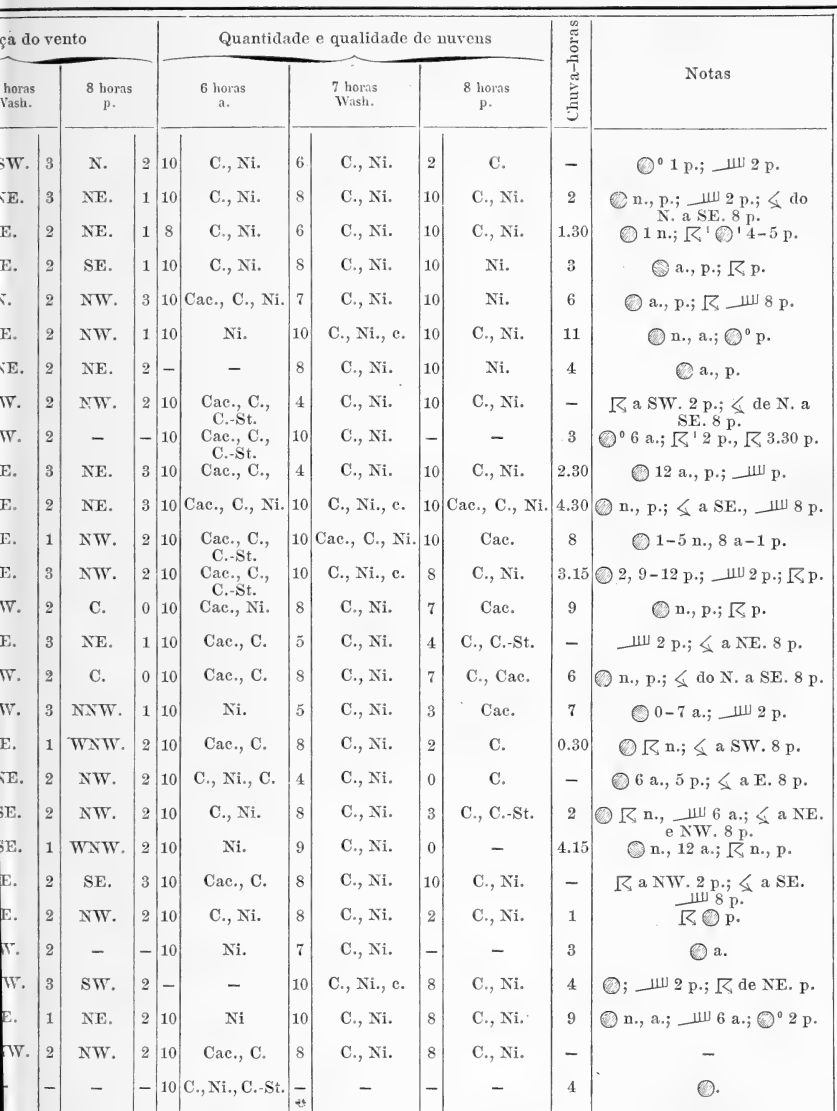 ça do vento Quantidade e qualidade de nuvens Chuva-horas Notas
horas Wash. 8 horas p. 6 horas a. 7 horas Wash. 8 horas p.
SW. 3 N. 2 10 C., Ni. 6 C., Ni. 2 C. — ⁰ 1 p.; 2 p.
NE. 3 NE. 1 10 C., Ni. 8 C., Ni. 10 C., Ni. 2 n., p.; 2 p.; do
N. a SE. 8 p.
E. 2 NE. 1 8 C., Ni. 6 C., Ni. 10 C., Ni. 1.30 1 n.; ¹ ¹ 4-5 p.
E. 2 SE. 1 10 C., Ni. 8 C., Ni. 10 Ni. 3 a., p.; p.
N. 2 NW. 3 10 Cac., C., Ni. 7 C., Ni. 10 Ni. 6 a., p.; 8 p.
E. 2 NW. 1 10 Ni. 10 C., Ni., c. 10 C., Ni. 11 n., a.; ⁰ p.
NE. 2 NE. 2 — — 8 C., Ni. 10 Ni. 4 a., p.
W. 2 NW. 2 10 Cac., C., 4 C., Ni. 10 C., Ni. — a SW. 2 p.; de N. a
C.-St. SE. 8 p.
W. 2 — — 10 Cac., C., 10 C., Ni. — — 3 ⁰ 6 a.; ¹ 2 p., 3.30 p.
C.-St.
E. 3 NE. 3 10 Cac., C., 4 C., Ni. 10 C., Ni. 2.30 12 a., p.; p.
E. 2 NE. 3 10 Cac., C., Ni. 10 C., Ni., c. 10 Cac., C., Ni. 4.30 n., p.; a SE., 8 p.
E. 1 NW. 2 10 Cac., C., 10 Cac., C., Ni. 10 Cac. 8 1-5 n., 8 a-1 p.
C.-St.
E. 3 NW. 2 10 Cac., C., 10 C., Ni., c. 8 C., Ni. 3.15 2, 9-12 p.; 2 p.; p.
C.-St.
W. 2 C. 0 10 Cac., Ni. 8 C., Ni. 7 Cac. 9 n., p.; p.
E. 3 NE. 1 10 Cac., C. 5 C., Ni. 4 C., C.-St. — 2 p.; a NE. 8 p.
W. 2 C. 0 10 Cac., C. 8 C., Ni. 7 C., Cac. 6 n., p.; do N. a SE. 8 p.
W. 3 NNW. 1 10 Ni. 5 C., Ni. 3 Cac. 7 0-7 a.; 2 p.
E. 1 WNW. 2 10 Cac., C. 8 C., Ni. 2 C. 0.30 n.; a SW. 8 p.
NE. 2 NW. 2 10 C., Ni., C. 4 C., Ni. 0 C. — 6 a., 5 p.; a E. 8 p.
SE. 2 NW. 2 10 C., Ni. 8 C., Ni. 3 C., C.-St. 2 n., 6 a.; a NE.
e NW. 8 p.
SE. 1 WNW. 2 10 Ni. 9 C., Ni. 0 — 4.15 n., 12 a.; n., p.
E. 2 SE. 3 10 Cac., C. 8 C., Ni. 10 C., Ni. — a NW. 2 p.; a SE.
8 p.
E. 2 NW. 2 10 C., Ni. 8 C., Ni. 2 C., Ni. 1 p.
W. 2 — — 10 Ni. 7 C., Ni. — — 3 a.
W. 3 SW. 2 — — 10 C., Ni., c. 8 C., Ni. 4 ; 2 p.; de NE. p.
E. 1 NE. 2 10 Ni 10 C., Ni. 8 C., Ni. 9 n., a.; 6 a.; ⁰ 2 p.
W. 2 NW. 2 10 Cac., C. 8 C., Ni. 8 C., Ni. — —
— — — 10 C., Ni., C.-St. — — — — 4 .